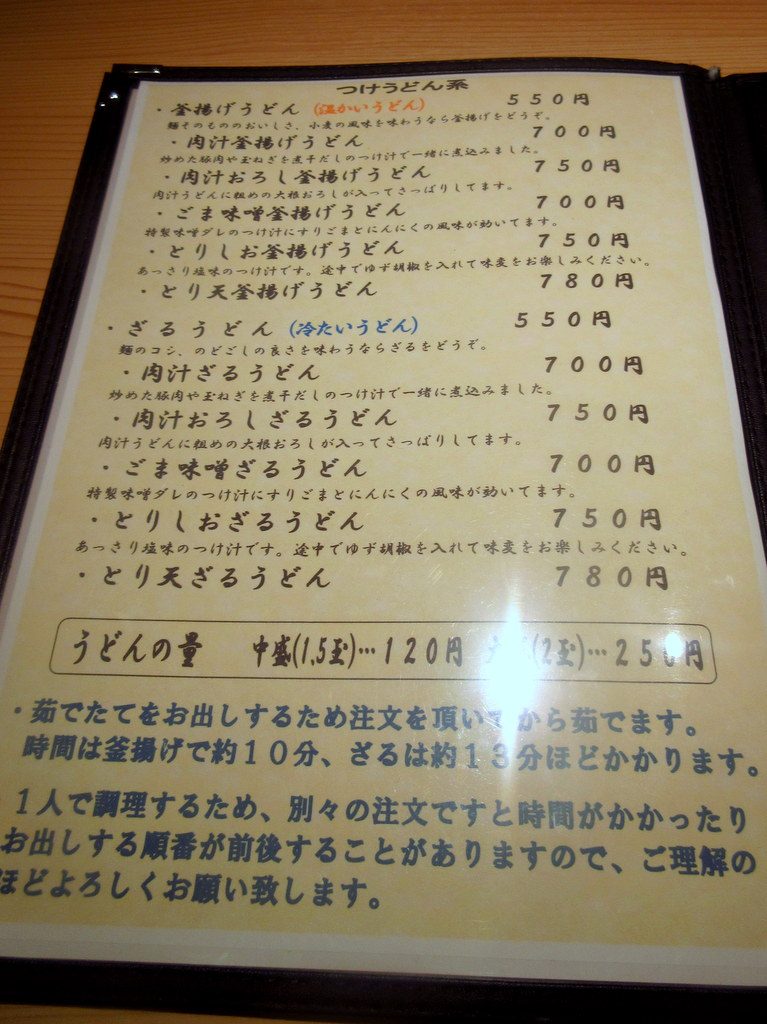 つけうどん系
・釜揚げうどん (温かいうどん) 550円
麺そのもののおいしさ、小麦の風味を味わうなら釜揚げをどうぞ。
・肉汁釜揚げうどん 700円
炒めた豚肉や玉ねぎを煮干だしのつけ汁で一緒に煮込みました。
・肉汁おろし釜揚げうどん 750円
肉汁うどんに粗めの大根おろしが入ってさっぱりしてます。
・ごま味噌釜揚げうどん 700円
特製味噌ダレのつけ汁にすりごまとにんにくの風味が効いてます。
・とりしお釜揚げうどん 750円
あっさり塩味のつけ汁です。途中でゆず胡椒を入れて味変をお楽しみください。
・とり天釜揚げうどん 780円
・ざるうどん (冷たいうどん) 550円
麺のコシ、のどごしの良さを味わうならざるをどうぞ。
・肉汁ざるうどん 700円
炒めた豚肉や玉ねぎを煮干だしのつけ汁で一緒に煮込みました。
・肉汁おろしざるうどん 750円
肉汁うどんに粗めの大根おろしが入ってさっぱりしてます。
・ごま味噌ざるうどん 700円
特製味噌ダレのつけ汁にすりごまとにんにくの風味が効いてます。
・とりしおざるうどん 750円
あっさり塩味のつけ汁です。途中でゆず胡椒を入れて味変をお楽しみください。
・とり天ざるうどん 780円
うどんの量 中盛(1,5玉)…120円 (2玉)…250円
・茹でたてをお出しするため注文を頂いてから茹でます。
時間は釜揚げで約10分、ざるは約13分ほどかかります。
1人で調理するため、別々の注文ですと時間がかかったり
お出しする順番が前後することがありますので、ご理解の
ほどよろしくお願い致します。